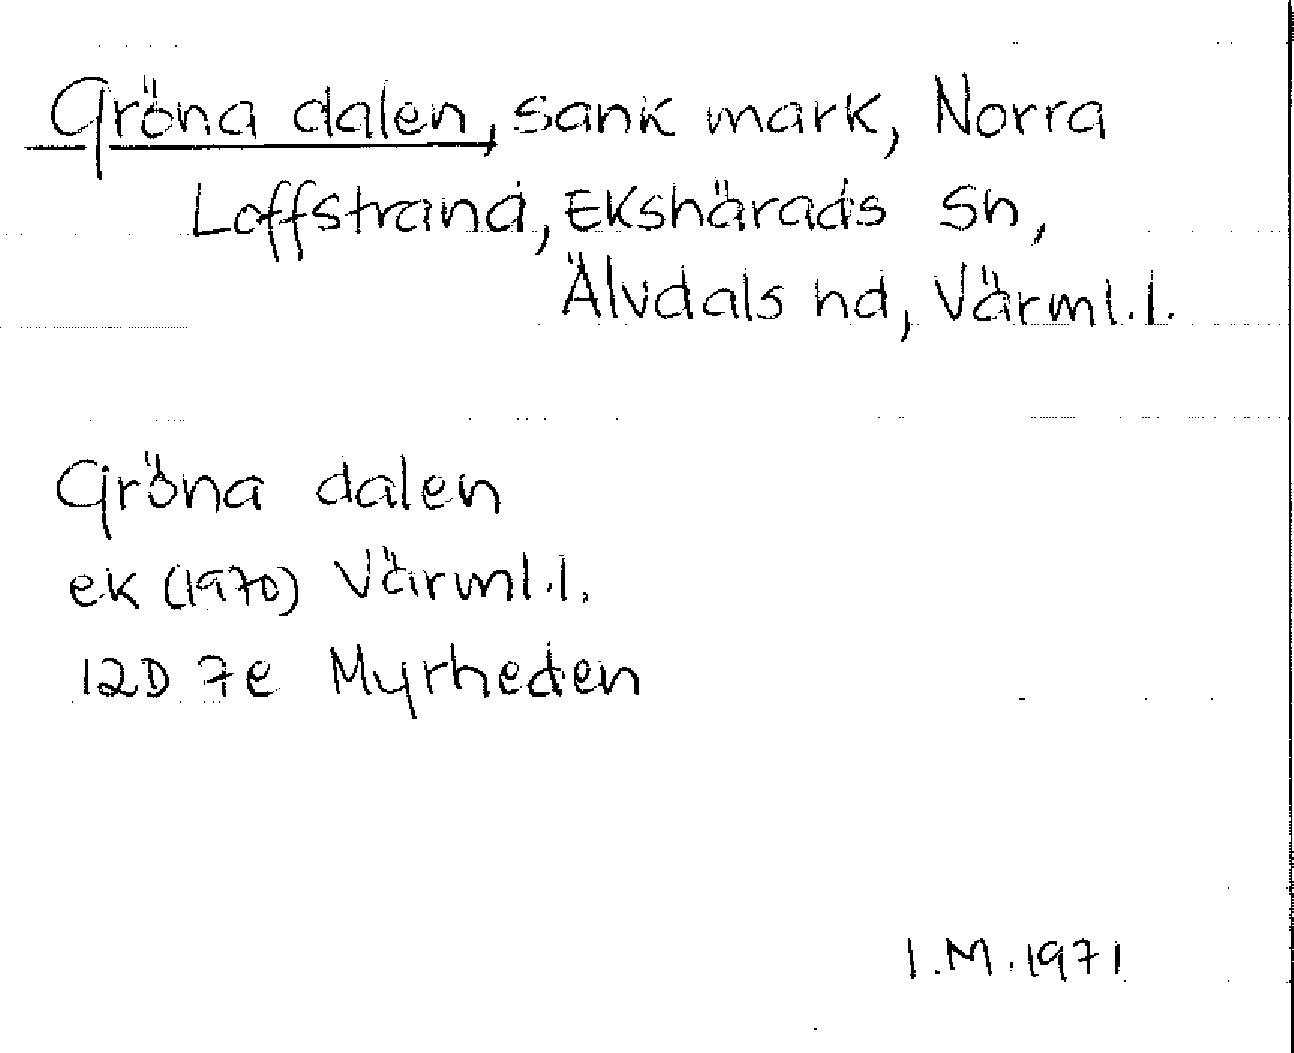 Gröna dalen, sank mark, Norra
Loffstrand, Ekshärads sn,
Älvdals hd, Värml.l.
Gröna dalen
ek (1970) Värml.l.
12D 7e Myrheden
I.M. 1971